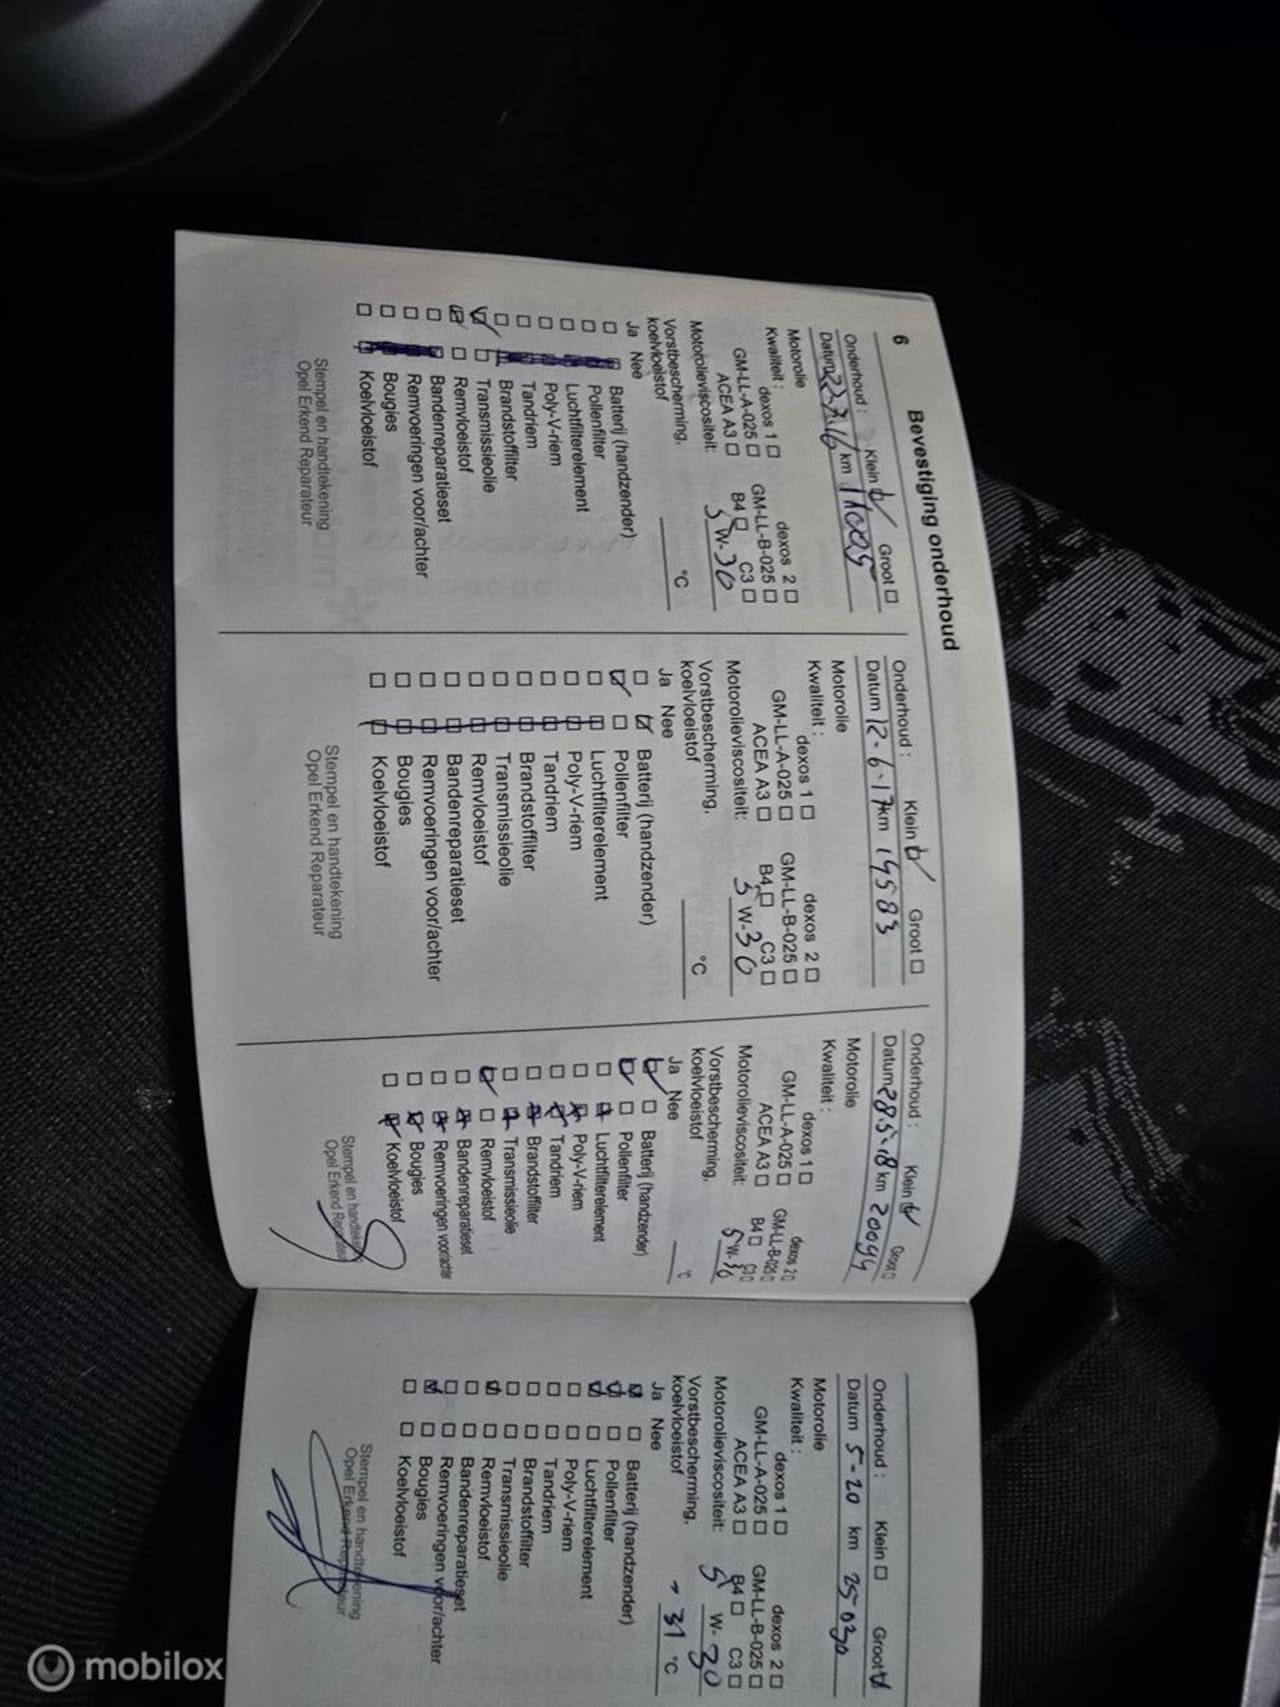 6 Bevestiging onderhoud
Onderhoud : Klein Groot
Datum 22-7-16 km
Motorolie
Kwaliteit : dexos 1 dexos 2
GM-LL-A-025 GM-LL-B-025
ACEA A3 B4 C3
Motorolieviscositeit: 5 W-30
Vorstbescherming,
koelvloeistof °C
Ja Nee
Batterij (handzender)
Pollenfilter
Luchtfilterelement
Poly-V-riem
Tandriem
Brandstoffilter
Transmissieolie
Remvloeistof
Bandenreparatieset
Remvoeringen voor/achter
Bougies
Koelvloeistof
Stempel en handtekening
Opel Erkend Reparateur
Onderhoud : Klein Groot
Datum 12-6-17 km 19583
Motorolie
Kwaliteit : dexos 1 dexos 2
GM-LL-A-025 GM-LL-B-025
ACEA A3 B4 C3
Motorolieviscositeit: 5 W-30
Vorstbescherming,
koelvloeistof °C
Ja Nee
Batterij (handzender)
Pollenfilter
Luchtfilterelement
Poly-V-riem
Tandriem
Brandstoffilter
Transmissieolie
Remvloeistof
Bandenreparatieset
Remvoeringen voor/achter
Bougies
Koelvloeistof
Stempel en handtekening
Opel Erkend Reparateur
Onderhoud : Klein Groot
Datum 28.5.18 km 20094
Motorolie
Kwaliteit : dexos 1 dexos 2
GM-LL-A-025 GM-LL-B-025
ACEA A3 B4 C3
Motorolieviscositeit: 5 W-30
Vorstbescherming,
koelvloeistof °C
Ja Nee
Batterij (handzender)
Pollenfilter
Luchtfilterelement
Poly-V-riem
Tandriem
Brandstoffilter
Transmissieolie
Remvloeistof
Bandenreparatieset
Remvoeringen voor/achter
Bougies
Koelvloeistof
Stempel en handtekening
Opel Erkend Reparateur
Onderhoud : Klein Groot
Datum 5-20 km 25030
Motorolie
Kwaliteit : dexos 1 dexos 2
GM-LL-A-025 GM-LL-B-025
ACEA A3 B4 C3
Motorolieviscositeit: 5 W-30
Vorstbescherming,
koelvloeistof - 31 °C
Ja Nee
Batterij (handzender)
Pollenfilter
Luchtfilterelement
Poly-V-riem
Tandriem
Brandstoffilter
Transmissieolie
Remvloeistof
Bandenreparatieset
Remvoeringen voor/achter
Bougies
Koelvloeistof
Stempel en handtekening
Opel Erkend Reparateur
mobilox